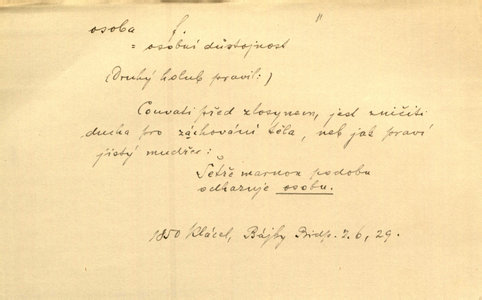 osoba f. "
= osobní důstojnost
(Druhý holub pravil:)
Couvati před zlosynem, jest zničiti
ducha pro záchování těla, neb jak praví
jistý mudřec:
Šetře marnou podobu
odhazuje osobu.
1850 Klácel, Bájky Bidp. 2.6, 29.